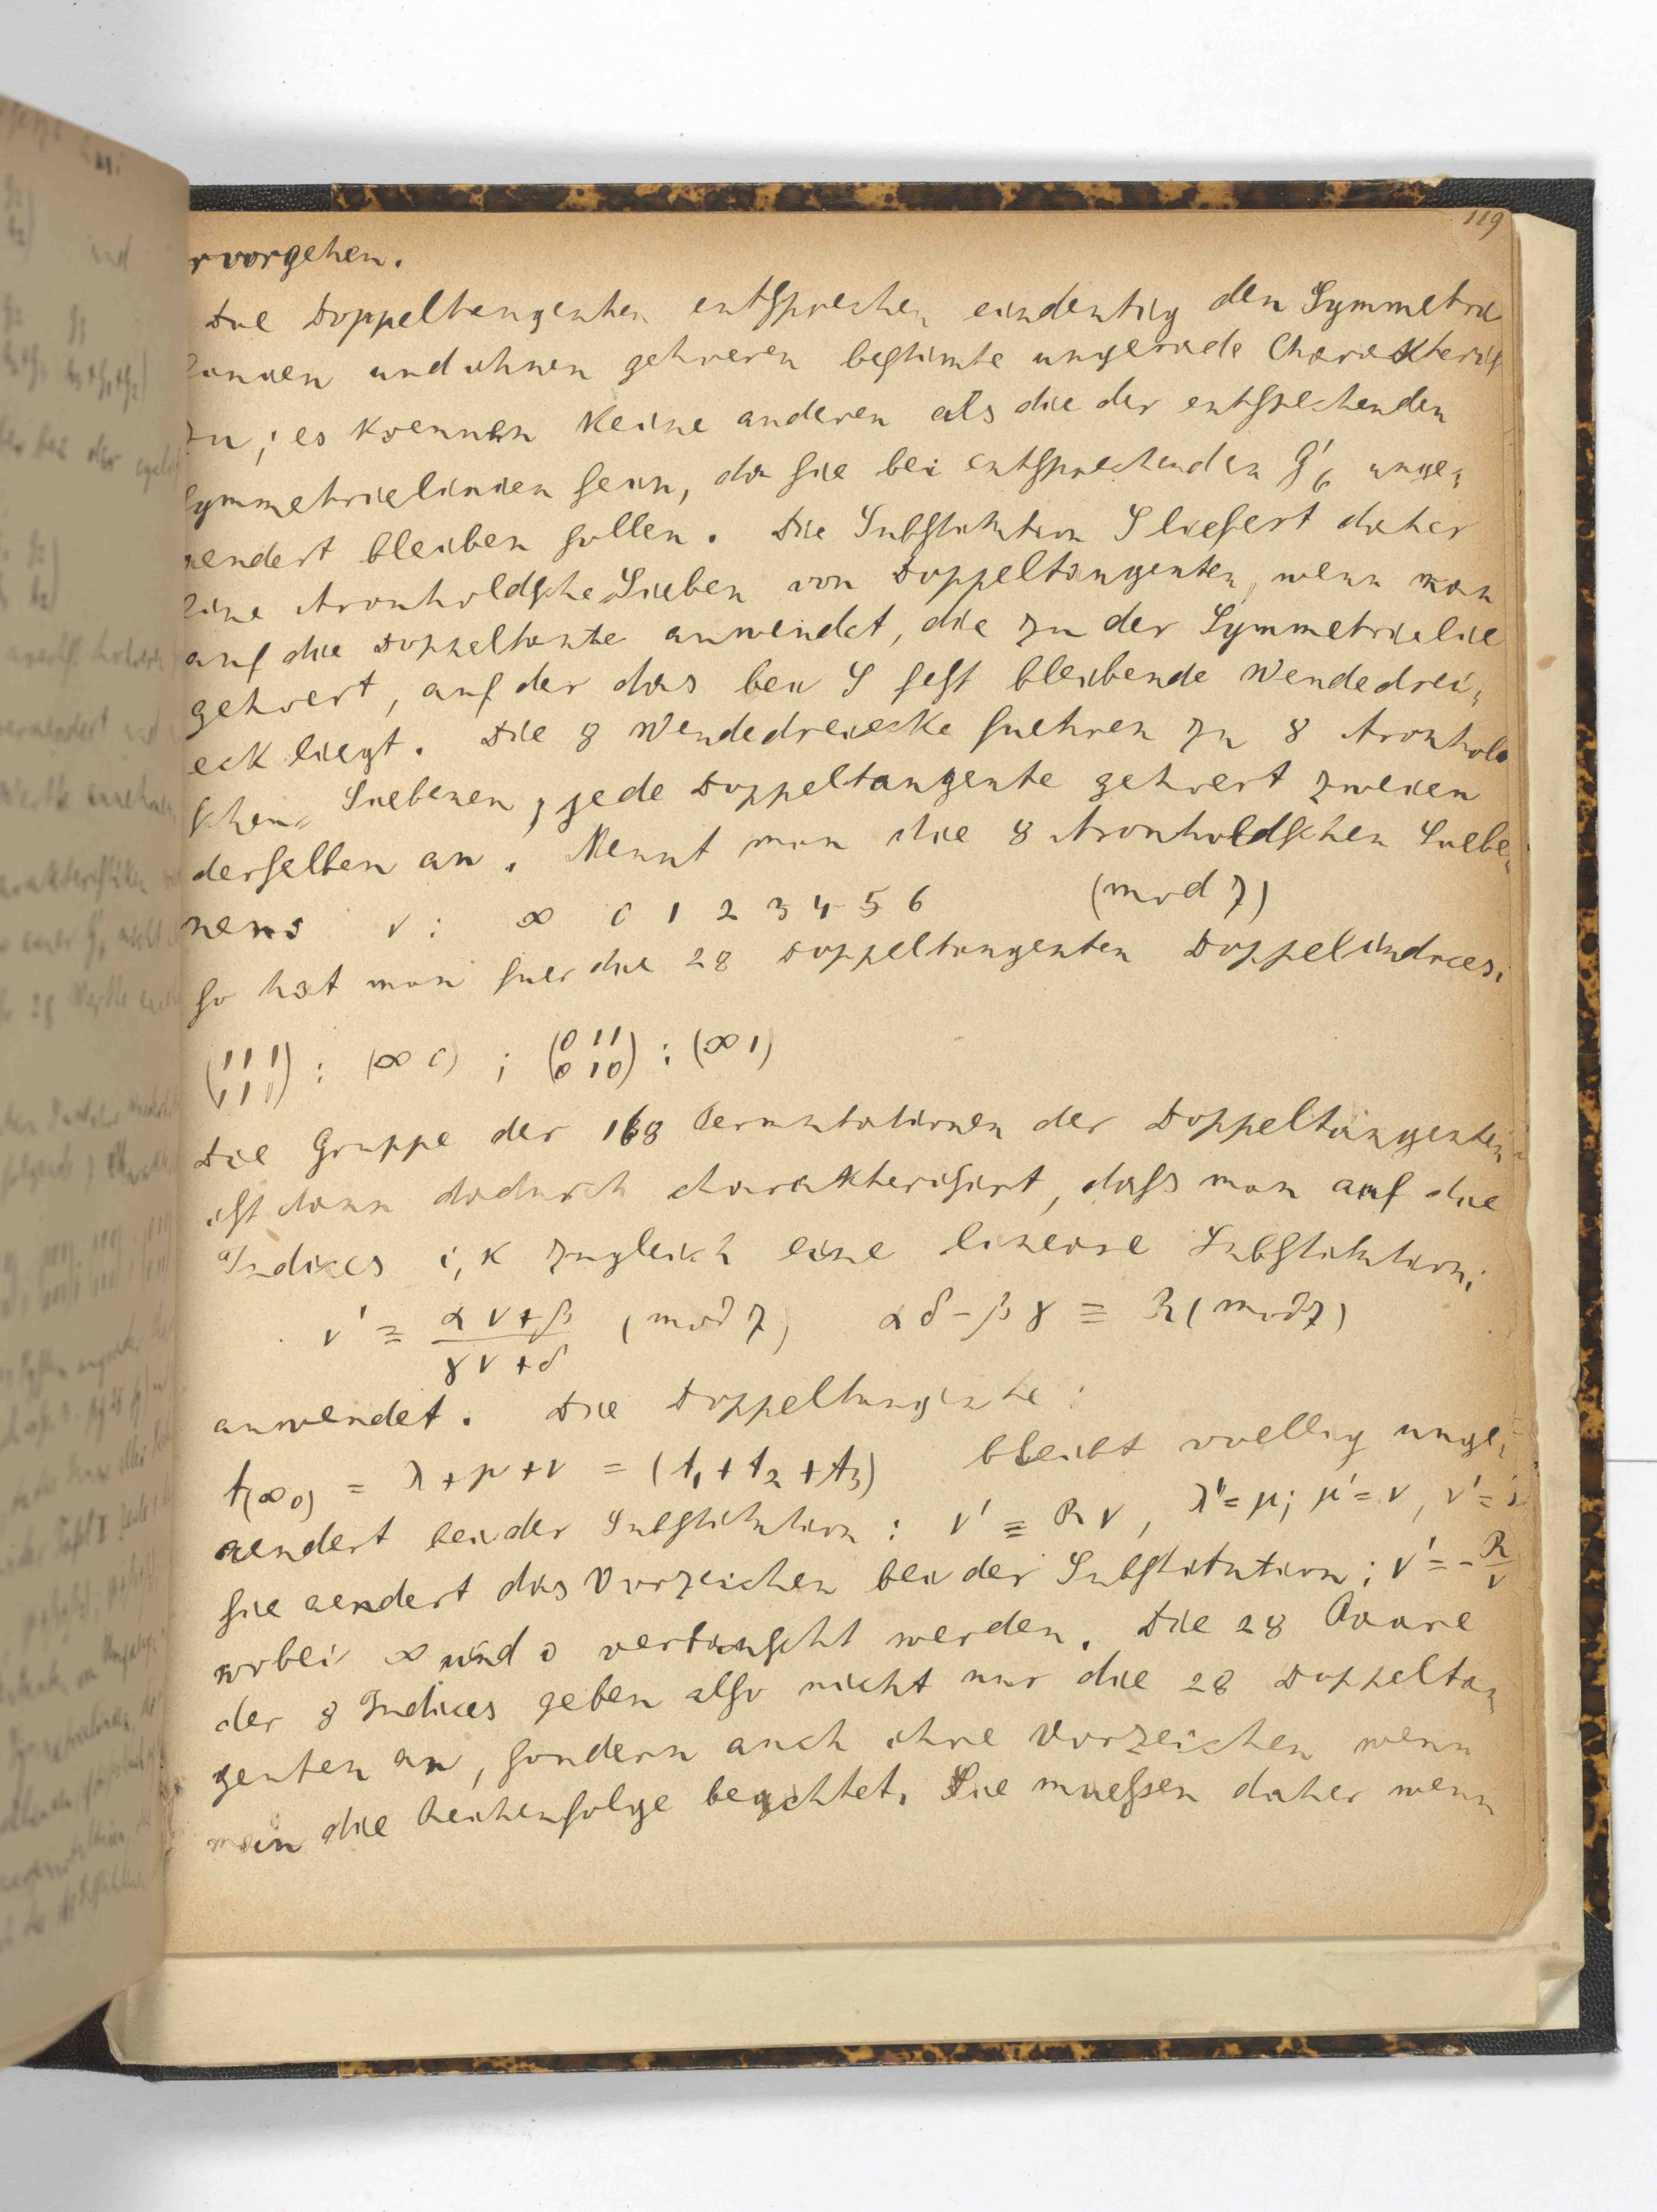 119
rvorgehen.
Die Doppeltangenten entsprechen eindeutig den Symmetrie
linien und ihnen gehoeren bestimte ungerade Charakteris
zu; es koennen keine anderen als die der entsprechenden
symmetrielinien sein, da sie bei entsprechenden G'6 unge-
aendert bleiben sollen. Die Substitution S liefert daher
eine Aronholdsche Sieben von Doppeltangenten, wenn man
auf die Doppeltante anwendet, die zu der Symmetrielie
gehoert, auf der das bei S fest bleibende Wendedrei-
eck liegt. Die 8 Wendedreiecke fuehren zu 8 Aronhold
schen Siebenen, jede Doppeltangente gehoert zweien
derselben an. Nennt man die 8 Aronholdschen Siebe-
nens ν: ∞ 0 1 2 3 4 5 6 (mod 7)
so hat man fuer die 28 Doppeltangenten Doppelindices:
(1 1 1) : (∞ 0) ; (0 1 1) : (∞ 1)
(1 1 1) (0 1 0)
Die Gruppe der 168 Permutationen der Doppeltangenten
ist dann dadurch charakterisirt, dass man auf die
Indices i, k zugleich eine lineare Substitution:
ν' ≡ (αν+β)/(γν+δ) (mod 7) αδ-βγ ≡ R (mod 7)
anwendet. Die Doppeltangente:
t(∞0) = λ+μ+ν = (t1+t2+t3) bleibt voellig unge-
aendert bei der Substitution: ν' ≡ Rν, λ'=μ; μ'=ν, ν'=λ
sie aendert das Vorzeichen bei der Substitution; ν' = -R/ν
wobei ∞ und 0 vertauscht werden. Die 28 Paare
der 8 Indices geben also nicht nur die 28 Doppeltan
genten an, sondern auch ihre Vorzeichen wenn
man die Reihenfolge beachtet. Sie muessen daher wenn